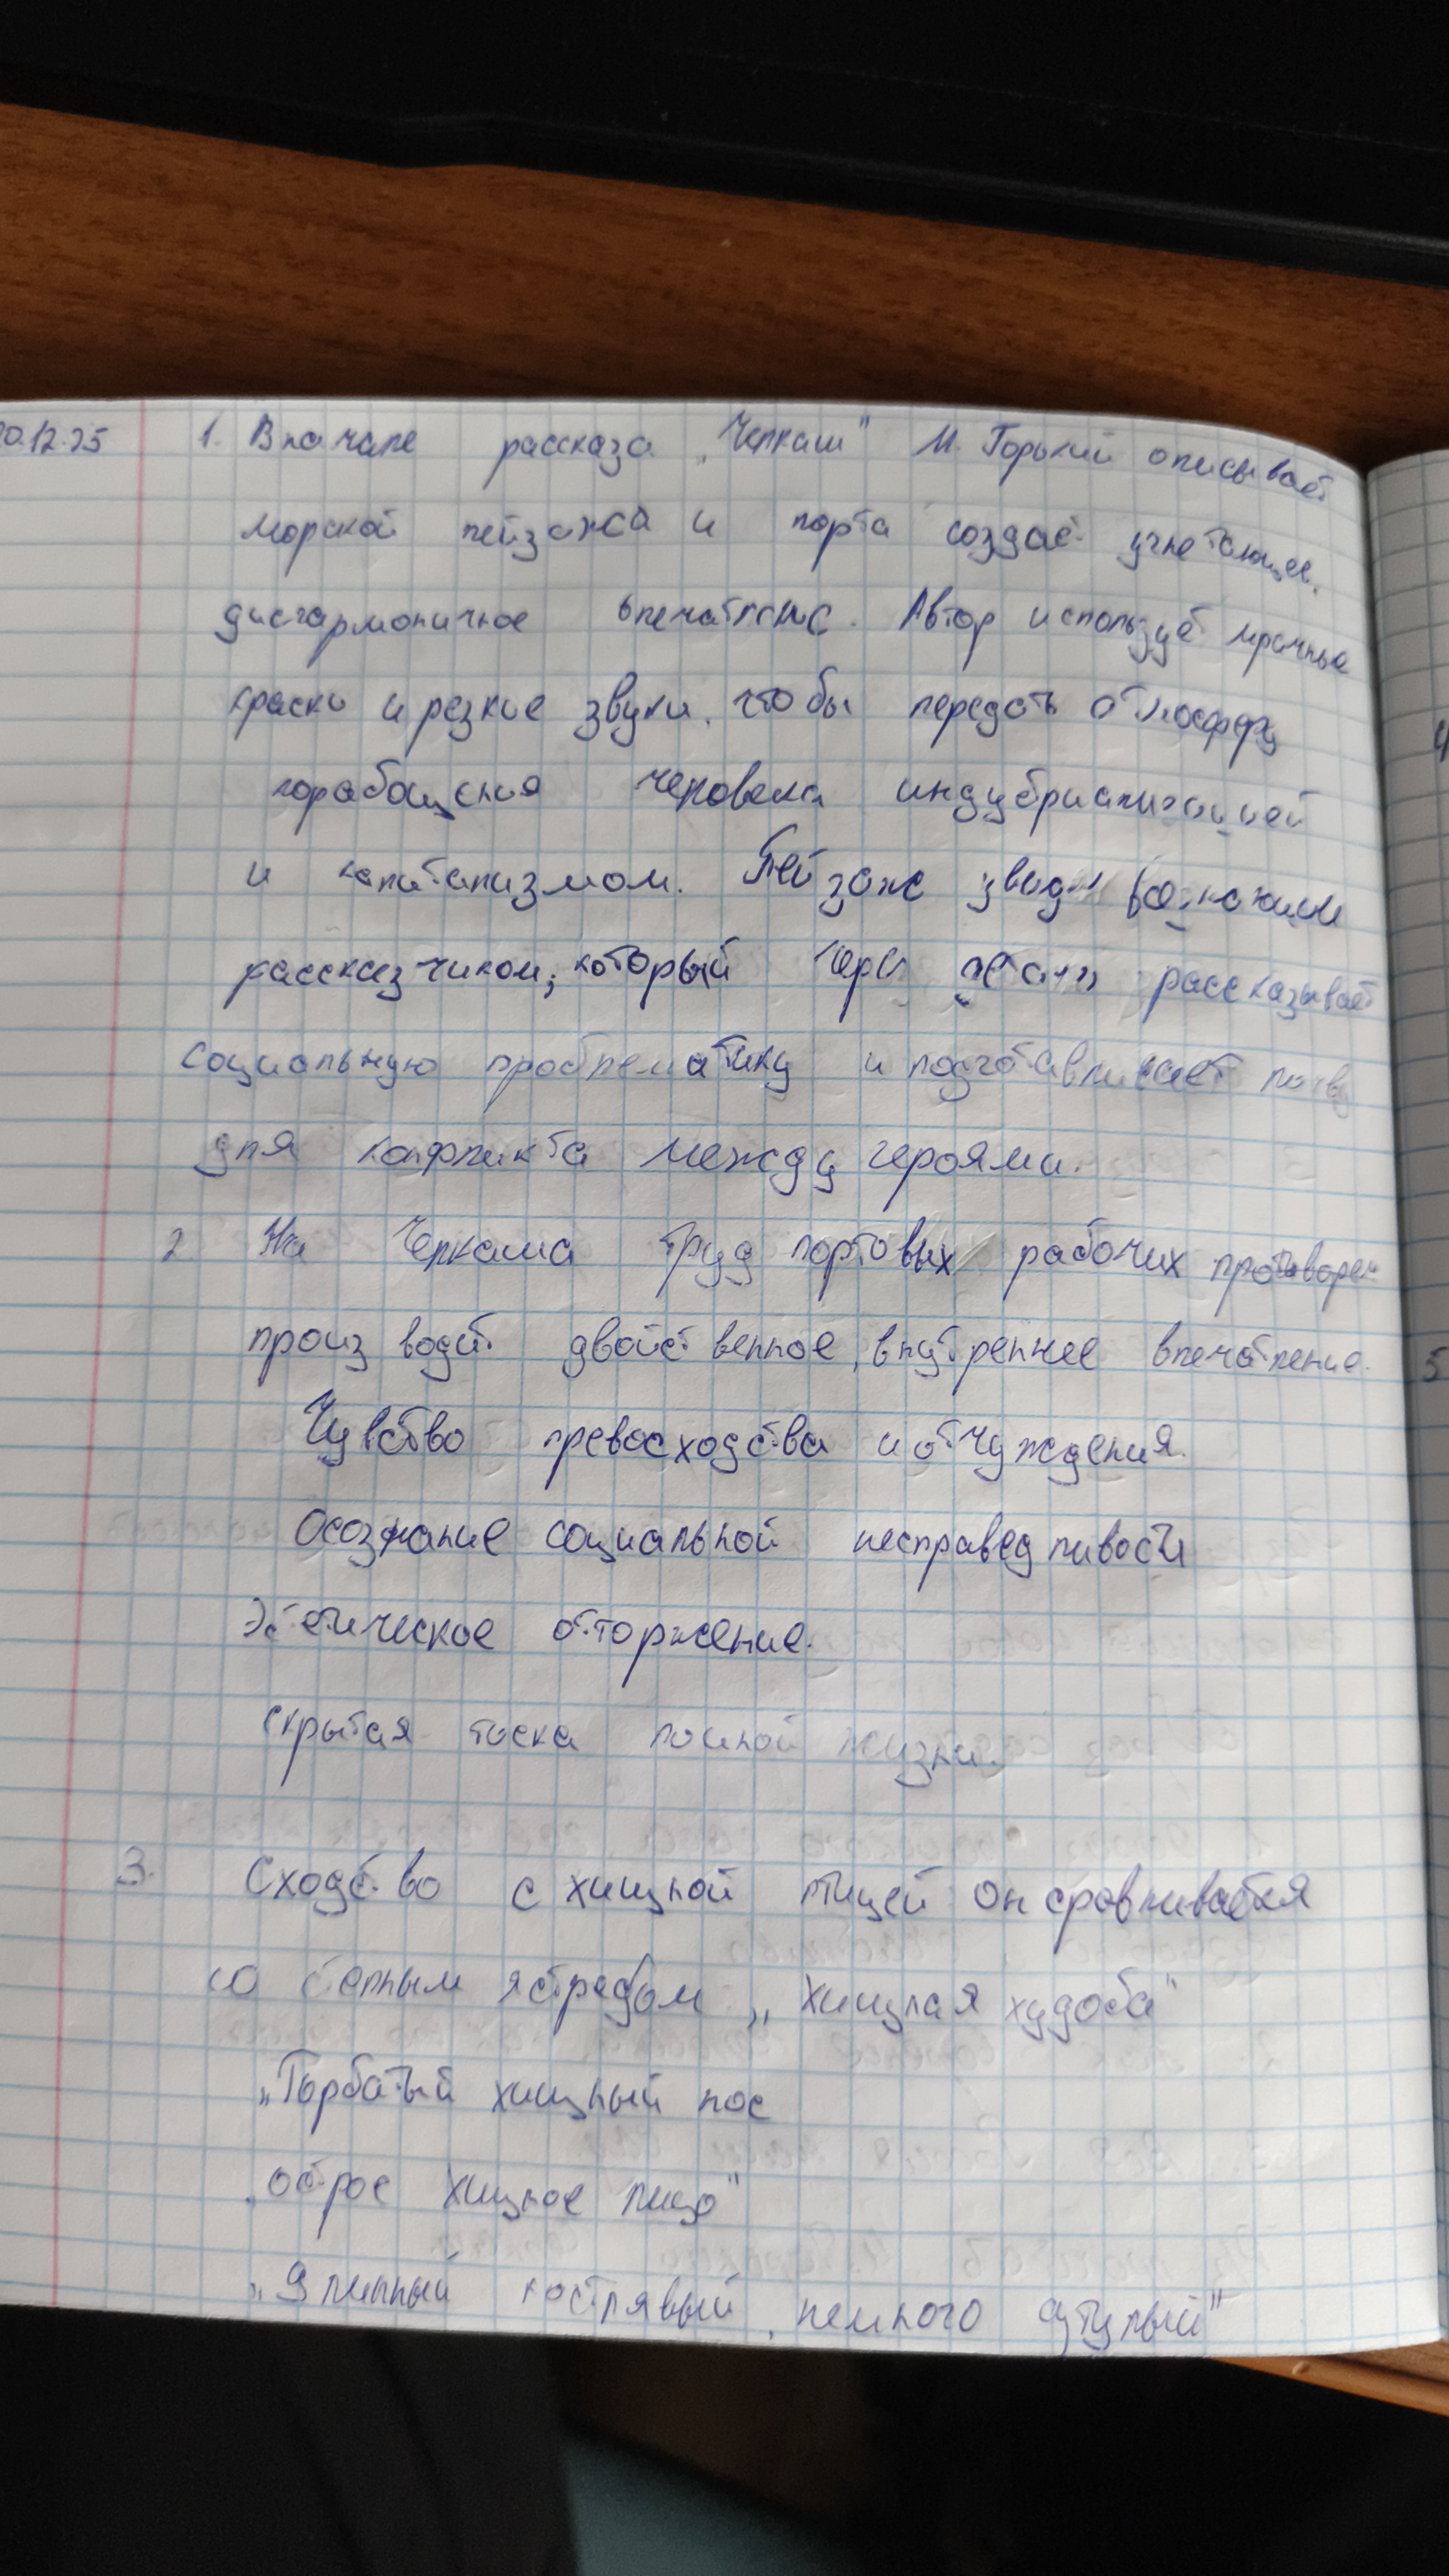 0.12.25
1. Вначале рассказа "Челкаш" М. Горький описывает
морской пейзажа и порта создаёт угнетающее,
дисгармоничное впечатление. Автор использует мрачные
краски и резкие звуки, чтобы передать атмосферу
порабощения человека индустриализацией
и капитализмом. Пейзаж увиден
рассказчиком, который через детали рассказывает
социальную проблематику и подготавливает почву
для конфликта между героями.
2 На Челкаша труд портовых рабочих
производит двойственное, внутреннее впечатление.
Чувство превосходства и отчуждения.
Осознание социальной несправедливости
Эстетическое отторжение.
скрытая тоска по иной жизни.
3. Сходство с хищной птицей он сравнивается
со степным ястребом, "хищная худоба"
"Горбатый хищный нос
"острое хищное лицо"
"Длинный костлявый, немного сутулый"
4
5